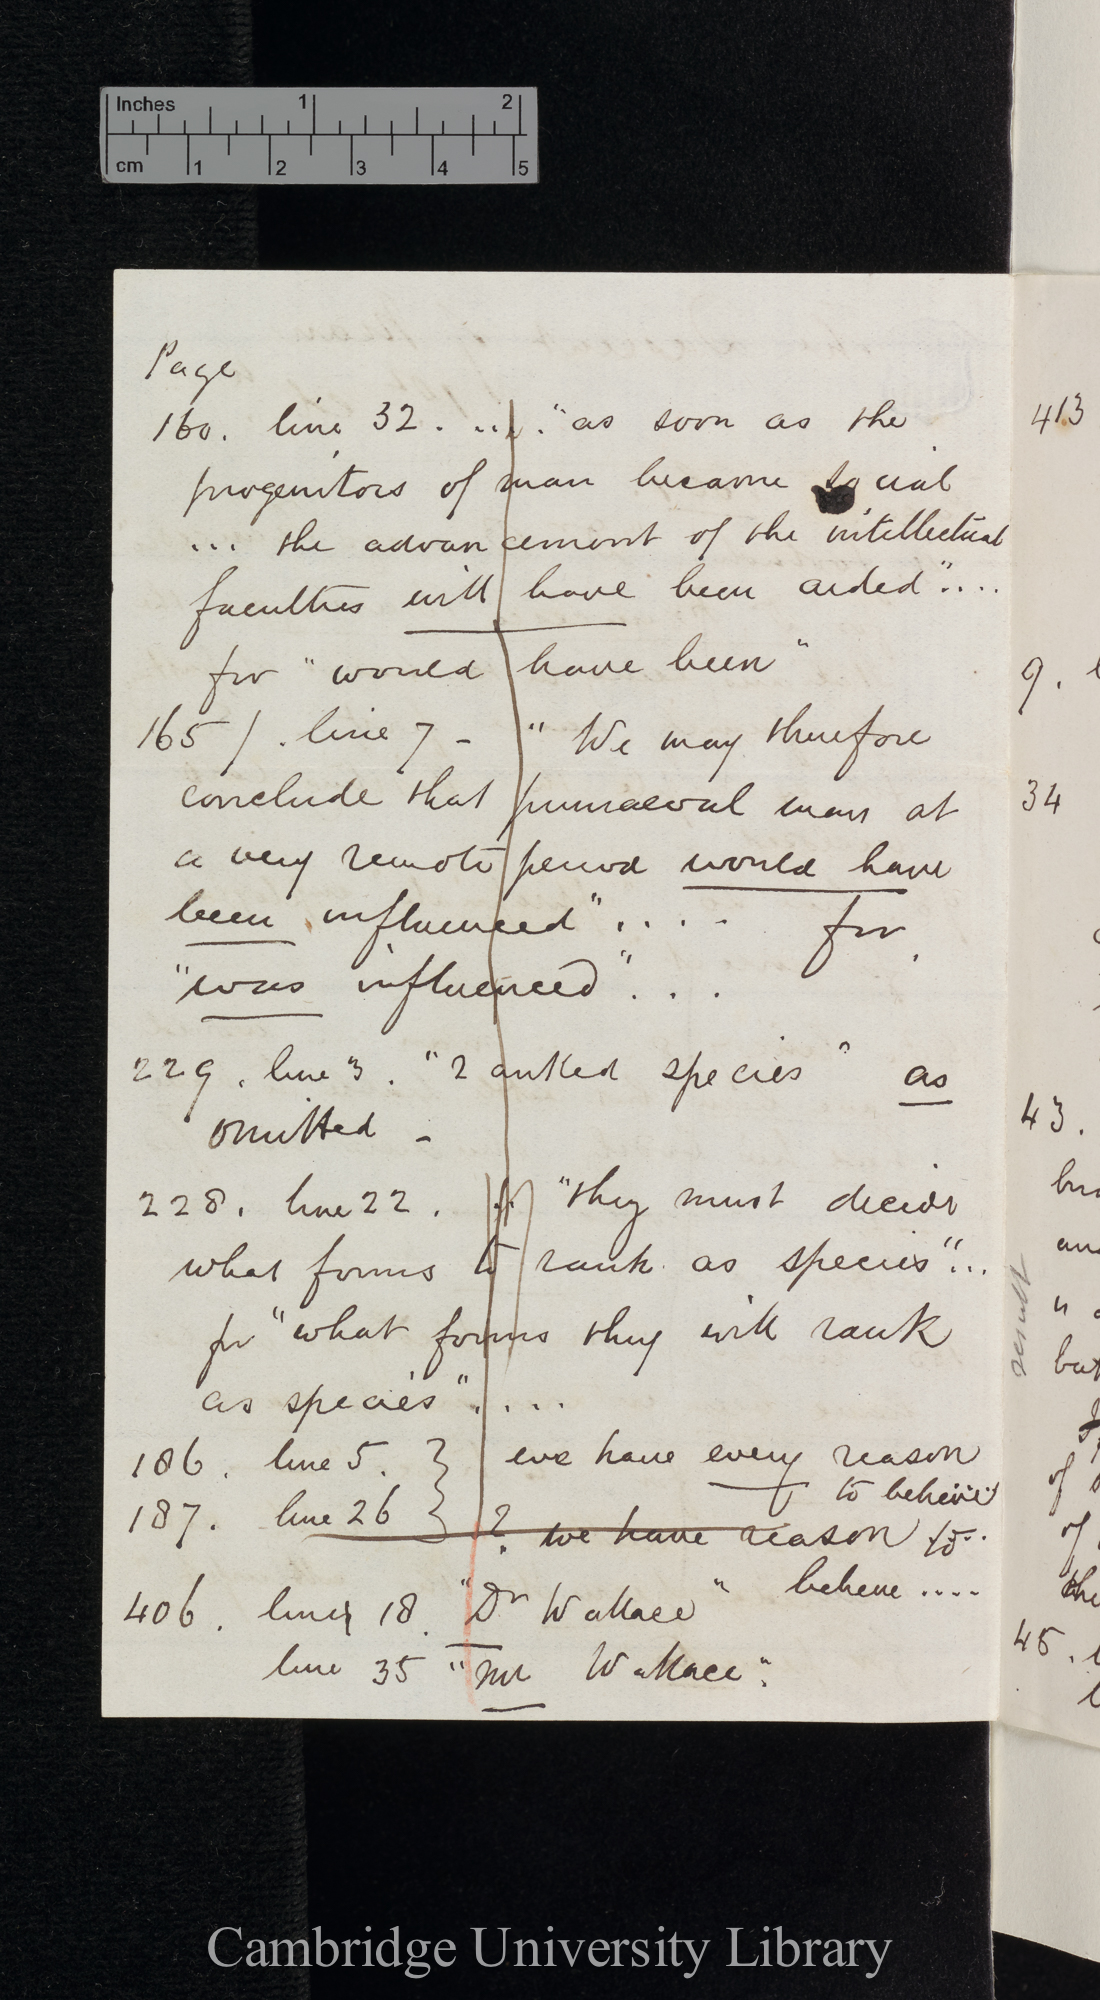 Inches 1 2
cm 1 2 3 4 5
Page
160. line 32. .... "as soon as the
progenitors of man became social
... the advancement of the intellectual
faculties will have been aided"....
for "would have been"
165/. line 7 - "We may therefore
conclude that primaeval man at
a very remote period would have
been influenced".... for
"was influenced"...
229. line 3. "Ranked species" as
omitted -
228. line 22. "they must decide
what forms to rank as species"...
for "what forms they will rank
as species"....
186. line 5. } we have every reason
to believe
187. line 26 } ? we have reason to..
believe ....
406. line 18. "Dr Wallace"
line 35 "Mr Wallace".
413
9.
34
43.
"
result
of
of
45.
Cambridge University Library